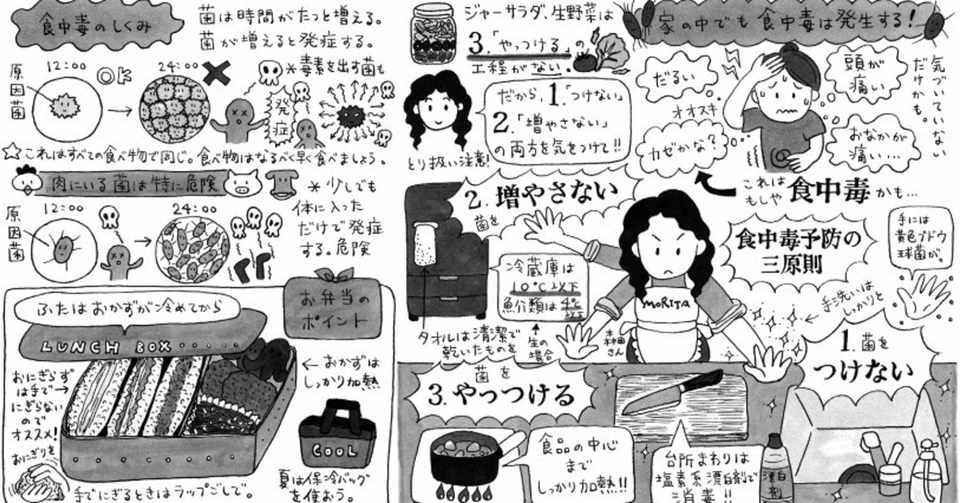 食中毒のしくみ
菌は時間がたっと増える。
菌が増えると発症する。
原因菌
12:00
OK
24:00
発症
＊毒素を出す菌も
☆これはすべての食べ物で同じ。食べ物はなるべく早く食べましょう。
肉にいる菌は特に危険
＊少しでも
体に入った
だけで発症
する。危険
原因菌
12:00
24:00
お弁当の
ポイント
ふたはおかずが冷めてから
LUNCH BOX
←おかずは
しっかり加熱
おにぎらず
は手で→
にぎらない
ので
オススメ!
おにぎりを
手でにぎるときはラップごしで。
COOL
夏は保冷バッグ
を使おう。
ジャーサラダ、生野菜は
3.「やっつける」の
工程がない。
だから、1.「つけない」
2.「増やさない」
の両方を気をつけて!!
とり扱い注意!
家の中でも食中毒は発生する!
だるい
オオスキ
カゼかな?
頭が
痛い
おなかが
痛い…
気づいていない
だけかも。
これは
もしや
食中毒かも…
2.菌を
増やさない
冷蔵庫は
10℃以下
魚介類は4℃
以下
生の場合
タオルは清潔で
乾いたものを
食中毒予防の
三原則
MORITA
森田さん
手洗いは
しっかりと
手には
黄色ブドウ
球菌が。
1.菌を
つけない
菌を
3.やっつける
食品の中心
まで
しっかり加熱!!
台所まわりは
塩素系漂白剤で
消毒!!
漂白剤